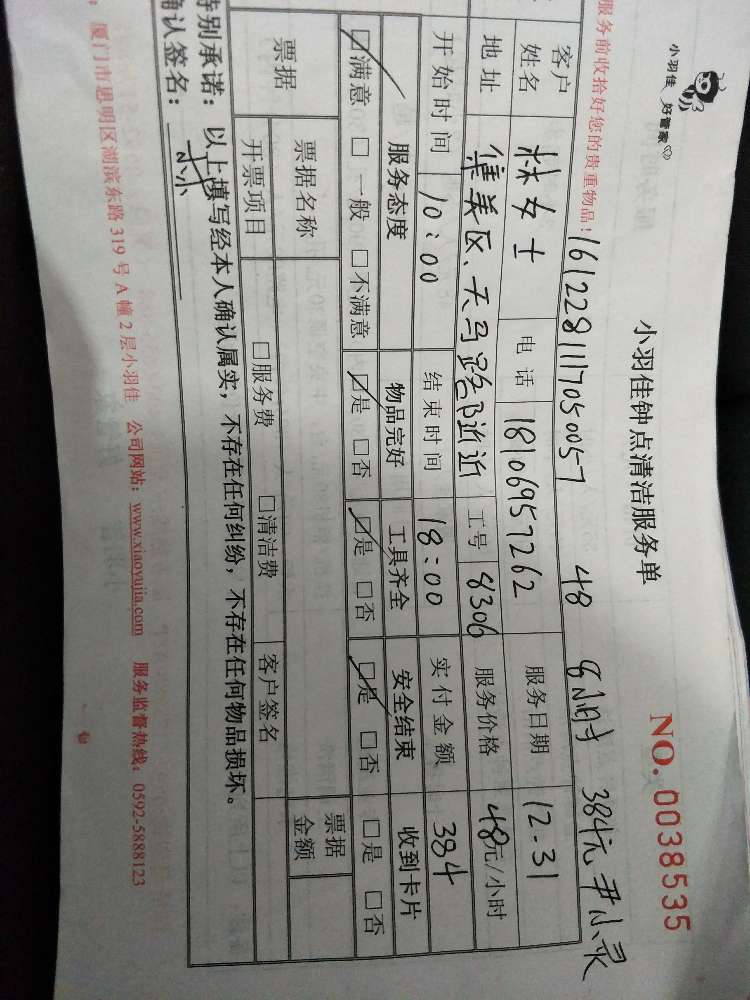 小羽佳 好管家
小羽佳钟点清洁服务单
NO. 0038535
服务前收拾好您的贵重物品！
1612281117050057 48 8小时 384元 尹小灵
客户姓名 林女士 电话 18106957262 服务日期 12-31
地址 集美区、天马路附近 工号 8306 服务价格 48元/小时
开始时间 10:00 结束时间 18:00 实付金额 384
服务态度 物品完好 工具齐全 安全结束 收到卡片
☑满意 □一般 □不满意 ☑是 □否 ☑是 □否 ☑是 □否 □是 □否
票据 票据名称 票据金额
开票项目 □服务费 □清洁费 客户签名
特别承诺：以上填写经本人确认属实，不存在任何纠纷，不存在任何物品损坏。
确认签名：林
厦门市思明区湖滨东路 319 号 A 幢 2 层小羽佳 公司网站：www.xiaoyujia.com 服务监督热线：0592-5888123